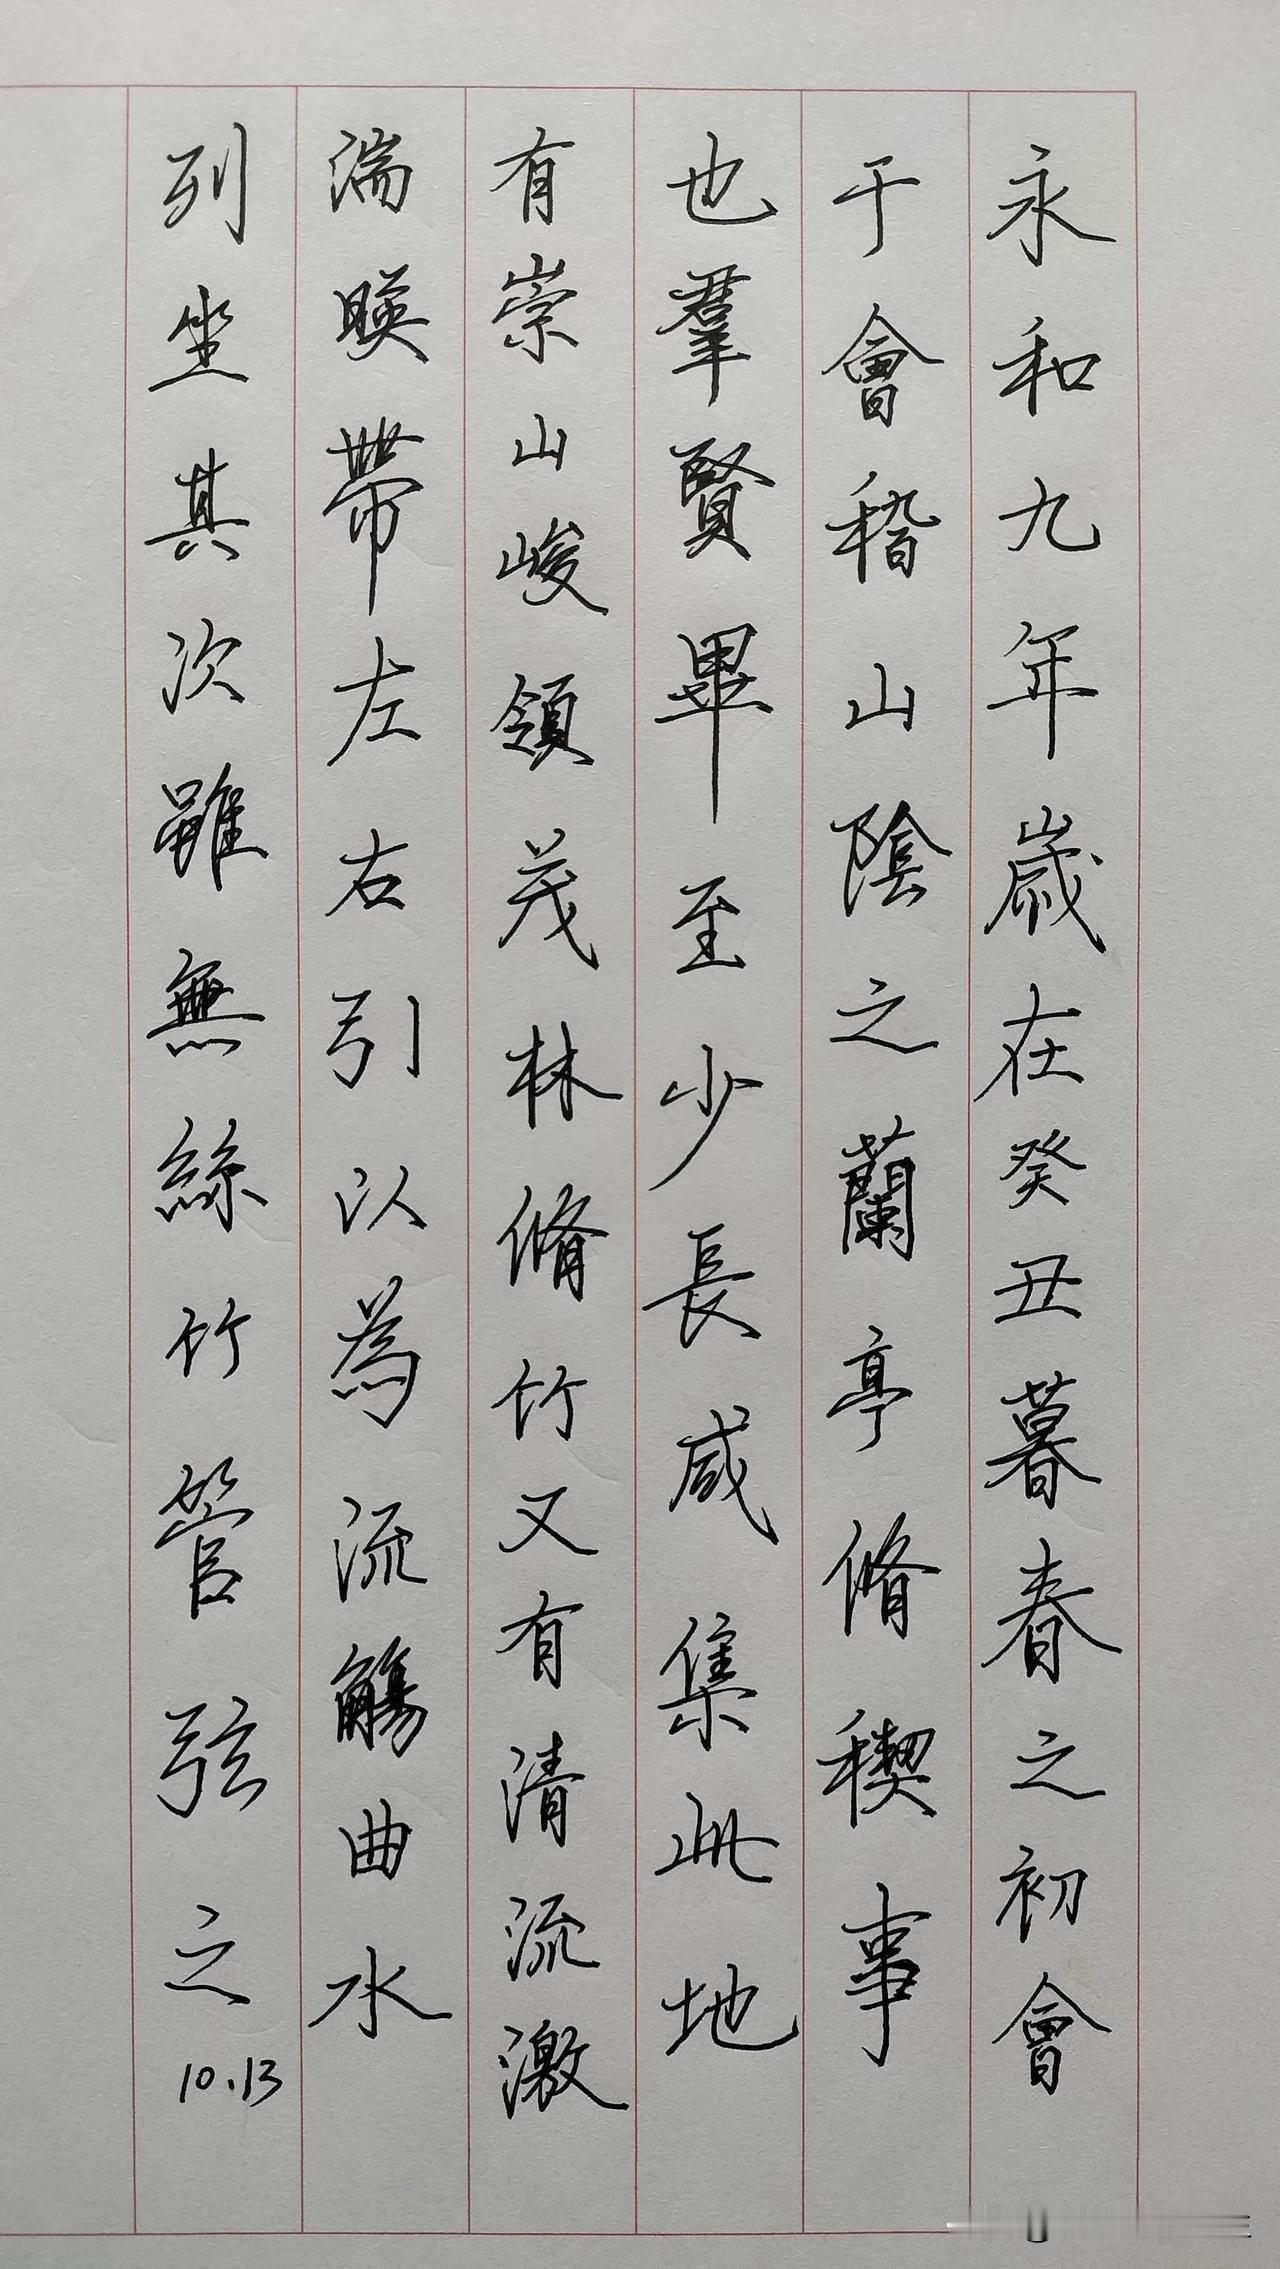 永和九年歲在癸丑暮春之初會
于會稽山陰之蘭亭脩稧事
也羣賢畢至少長咸集此地
有崇山峻領茂林脩竹又有清流激
湍暎帶左右引以為流觴曲水
列坐其次雖無絲竹管弦之
10.13